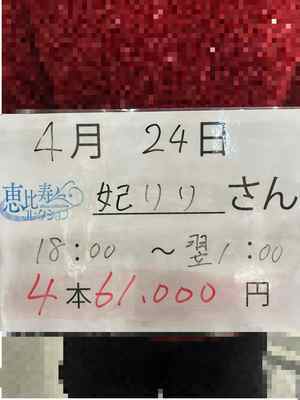 4月 24日
恵比寿
コレクション
妃リリ さん
18:00 ～ 翌1:00
4本61.000 円